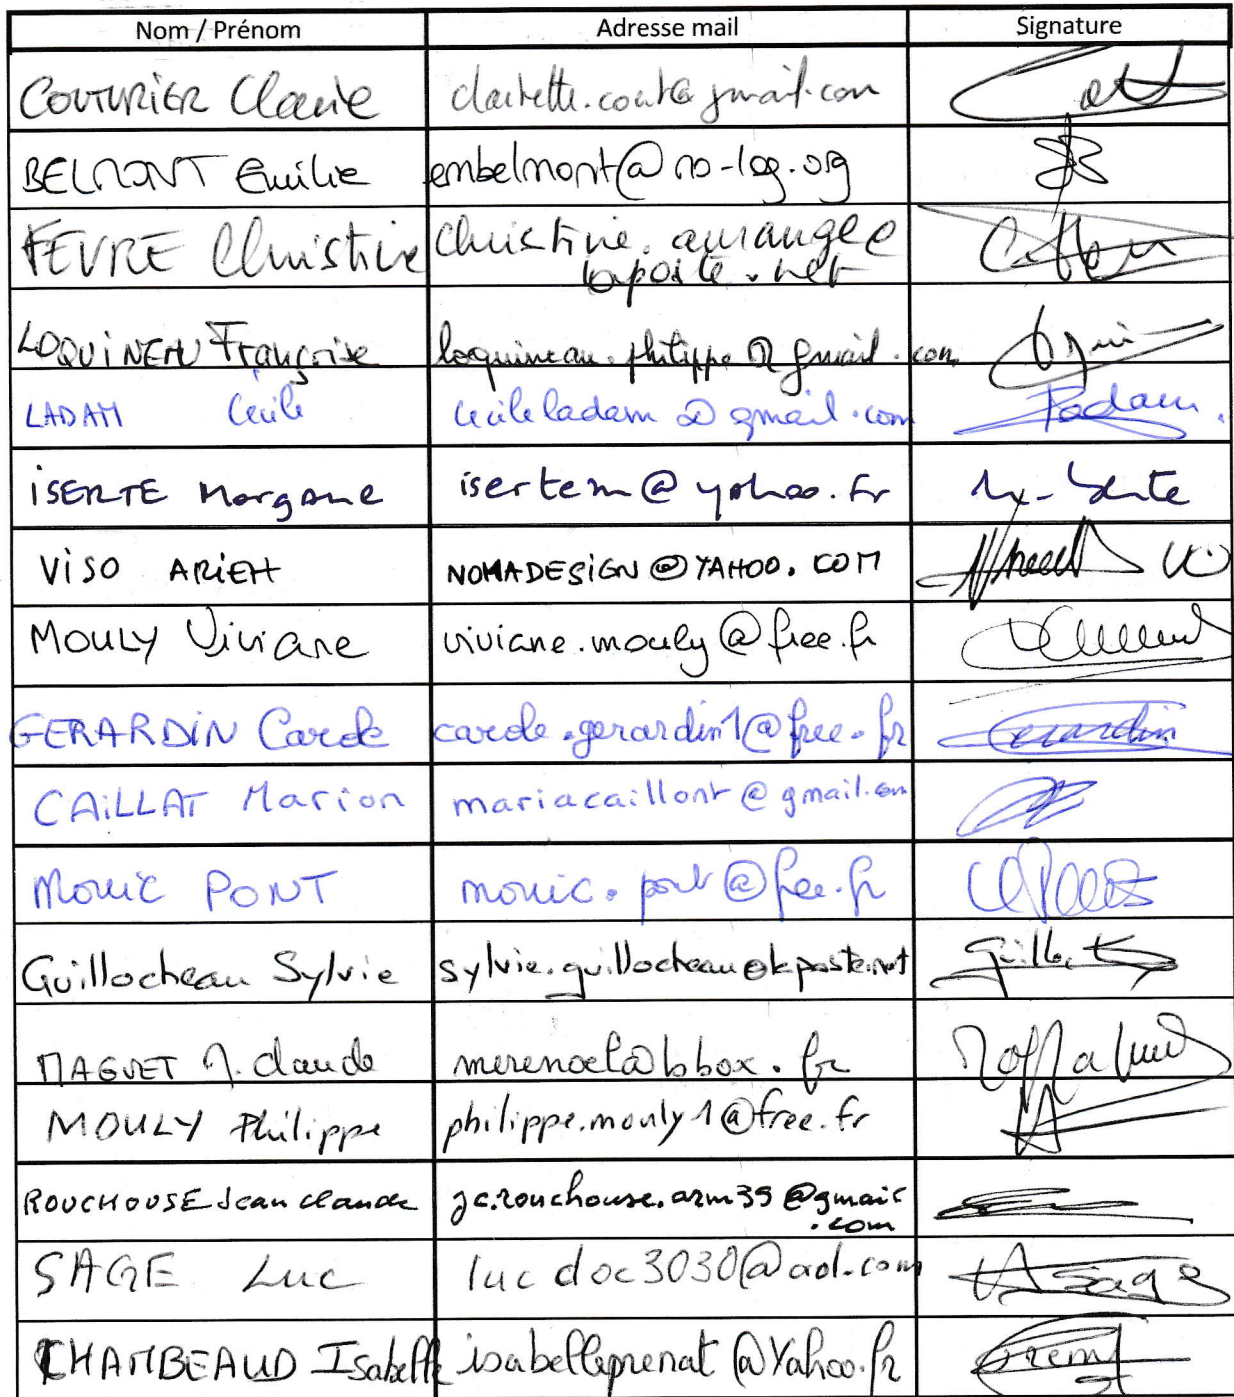 Nom / Prénom Adresse mail Signature
COUTURIER Claire clairette.cout@gmail.com
BELMONT Emilie embelmont@no-log.org
FEVRE Christine christine.aurange@
laposte.net
LOQUINEAU Françoise loquineau.philippe@gmail.com
LADAM Cécile cecileladam@gmail.com Ladam.
ISERTE Morgane isertem@yahoo.fr
VISO ARIEH NOMADESIGN@YAHOO.COM
MOULY Viviane viviane.mouly@free.fr
GERARDIN Carole carole.gerardin1@free.fr Gerardin
CAILLAT Marion mariacaillont@gmail.com
Monic PONT monic.pont@free.fr
Guillocheau Sylvie sylvie.guillocheau@laposte.net
MAGUET M. Claude merenoel@bbox.fr
MOULY Philippe philippe.mouly1@free.fr
ROUCHOUSE Jean Claude jc.rouchouse.arm39@gmail
.com
SAGE Luc lucdoc3030@aol.com Sage
CHAMBEAUD Isabelle isabelleprenat@Yahoo.fr